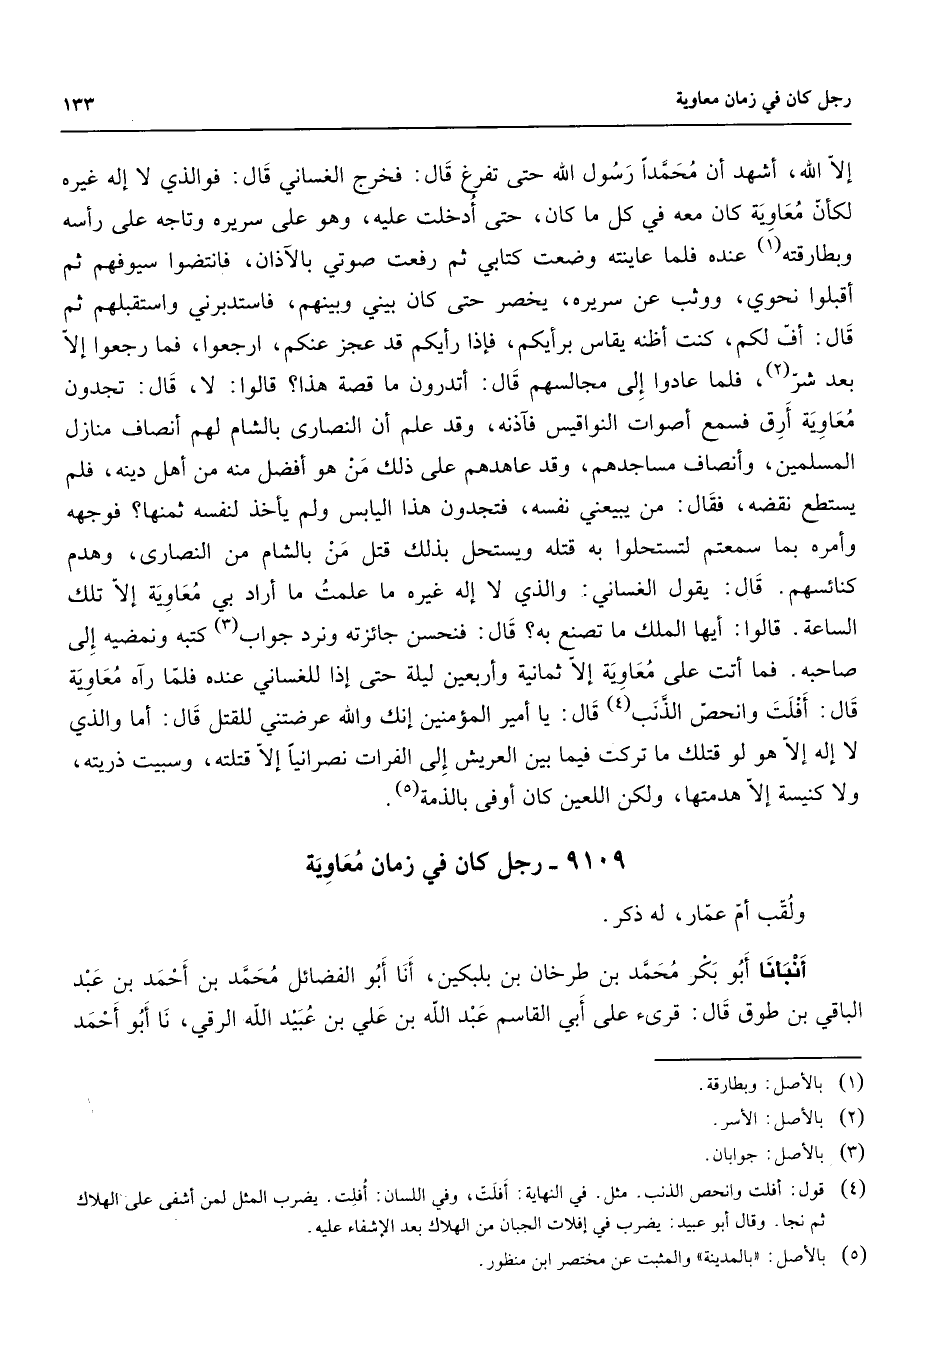 رجل كان في زمان معاوية
١٣٣
إلاّ الله، أشهد أن مُحَمَّداً رَسُول الله حتى تفرغ قَال: فخرج الغساني قَال: فوالذي لا إله غيره
لكأنّ مُعَاوِيَة كان معه في كل ما كان، حتى أُدخلت عليه، وهو على سريره وتاجه على رأسه
وبطارقته(١) عنده فلما عاينته وضعت كتابي ثم رفعت صوتي بالآذان، فانتضوا سيوفهم ثم
أقبلوا نحوي، ووثب عن سريره، يخصر حتى كان بيني وبينهم، فاستدبرني واستقبلهم ثم
قَال: أفّ لكم، كنت أظنه يقاس برأيكم، فإذا رأيكم قد عجز عنكم، ارجعوا، فما رجعوا إلاّ
بعد شرّ(٢)، فلما عادوا إلى مجالسهم قَال: أتدرون ما قصة هذا؟ قالوا: لا، قَال: تجدون
مُعَاوِيَة أَرِق فسمع أصوات النواقيس فآذنه، وقد علم أن النصارى بالشام لهم أنصاف منازل
المسلمين، وأنصاف مساجدهم، وقد عاهدهم على ذلك مَنْ هو أفضل منه من أهل دينه، فلم
يستطع نقضه، فقَال: من يبيعني نفسه، فتجدون هذا اليابس ولم يأخذ لنفسه ثمنها؟ فوجهه
وأمره بما سمعتم لتستحلوا به قتله ويستحل بذلك قتل مَنْ بالشام من النصارى، وهدم
كنائسهم. قَال: يقول الغساني: والذي لا إله غيره ما علمتُ ما أراد بي مُعَاوِيَة إلاّ تلك
الساعة. قالوا: أيها الملك ما تصنع به؟ قَال: فنحسن جائزته ونرد جواب(٣) كتبه ونمضيه إلى
صاحبه. فما أتت على مُعَاوِيَة إلاّ ثمانية وأربعين ليلة حتى إذا للغساني عنده فلمّا رآه مُعَاوِيَة
قَال: أَفْلَتَ وانحصّ الذَّنَب(٤) قَال: يا أمير المؤمنين إنك والله عرضتني للقتل قَال: أما والذي
لا إله إلاّ هو لو قتلك ما تركت فيما بين العريش إلى الفرات نصرانياً إلاّ قتلته، وسبيت ذريته،
ولا كنيسة إلاّ هدمتها، ولكن اللعين كان أوفى بالذمة(٥).
٩١٠٩ - رجل كان في زمان مُعَاوِيَة
ولُقّب أمّ عمّار، له ذكر.
أَنْبَانَا أَبُو بَكْر مُحَمَّد بن طرخان بن بلبكين، أَنَا أَبُو الفضائل مُحَمَّد بن أَحْمَد بن عَبْد
الباقي بن طوق قَال: قرىء على أَبي القاسم عَبْد اللّه بن عَلي بن عُبَيْد اللّه الرقي، نَا أَبُو أَحْمَد
(١) بالأصل: وبطارقة.
(٢) بالأصل: الأسر.
(٣) بالأصل: جوابان.
(٤) قول: أفلت وانحص الذنب. مثل. في النهاية: أَفلَتّ، وفي اللسان: أُفلِت. يضرب المثل لمن أشفى على الهلاك
ثم نجا. وقال أبو عبيد: يضرب في إفلات الجبان من الهلاك بعد الإشفاء عليه.
(٥) بالأصل: «بالمدينة» والمثبت عن مختصر ابن منظور.